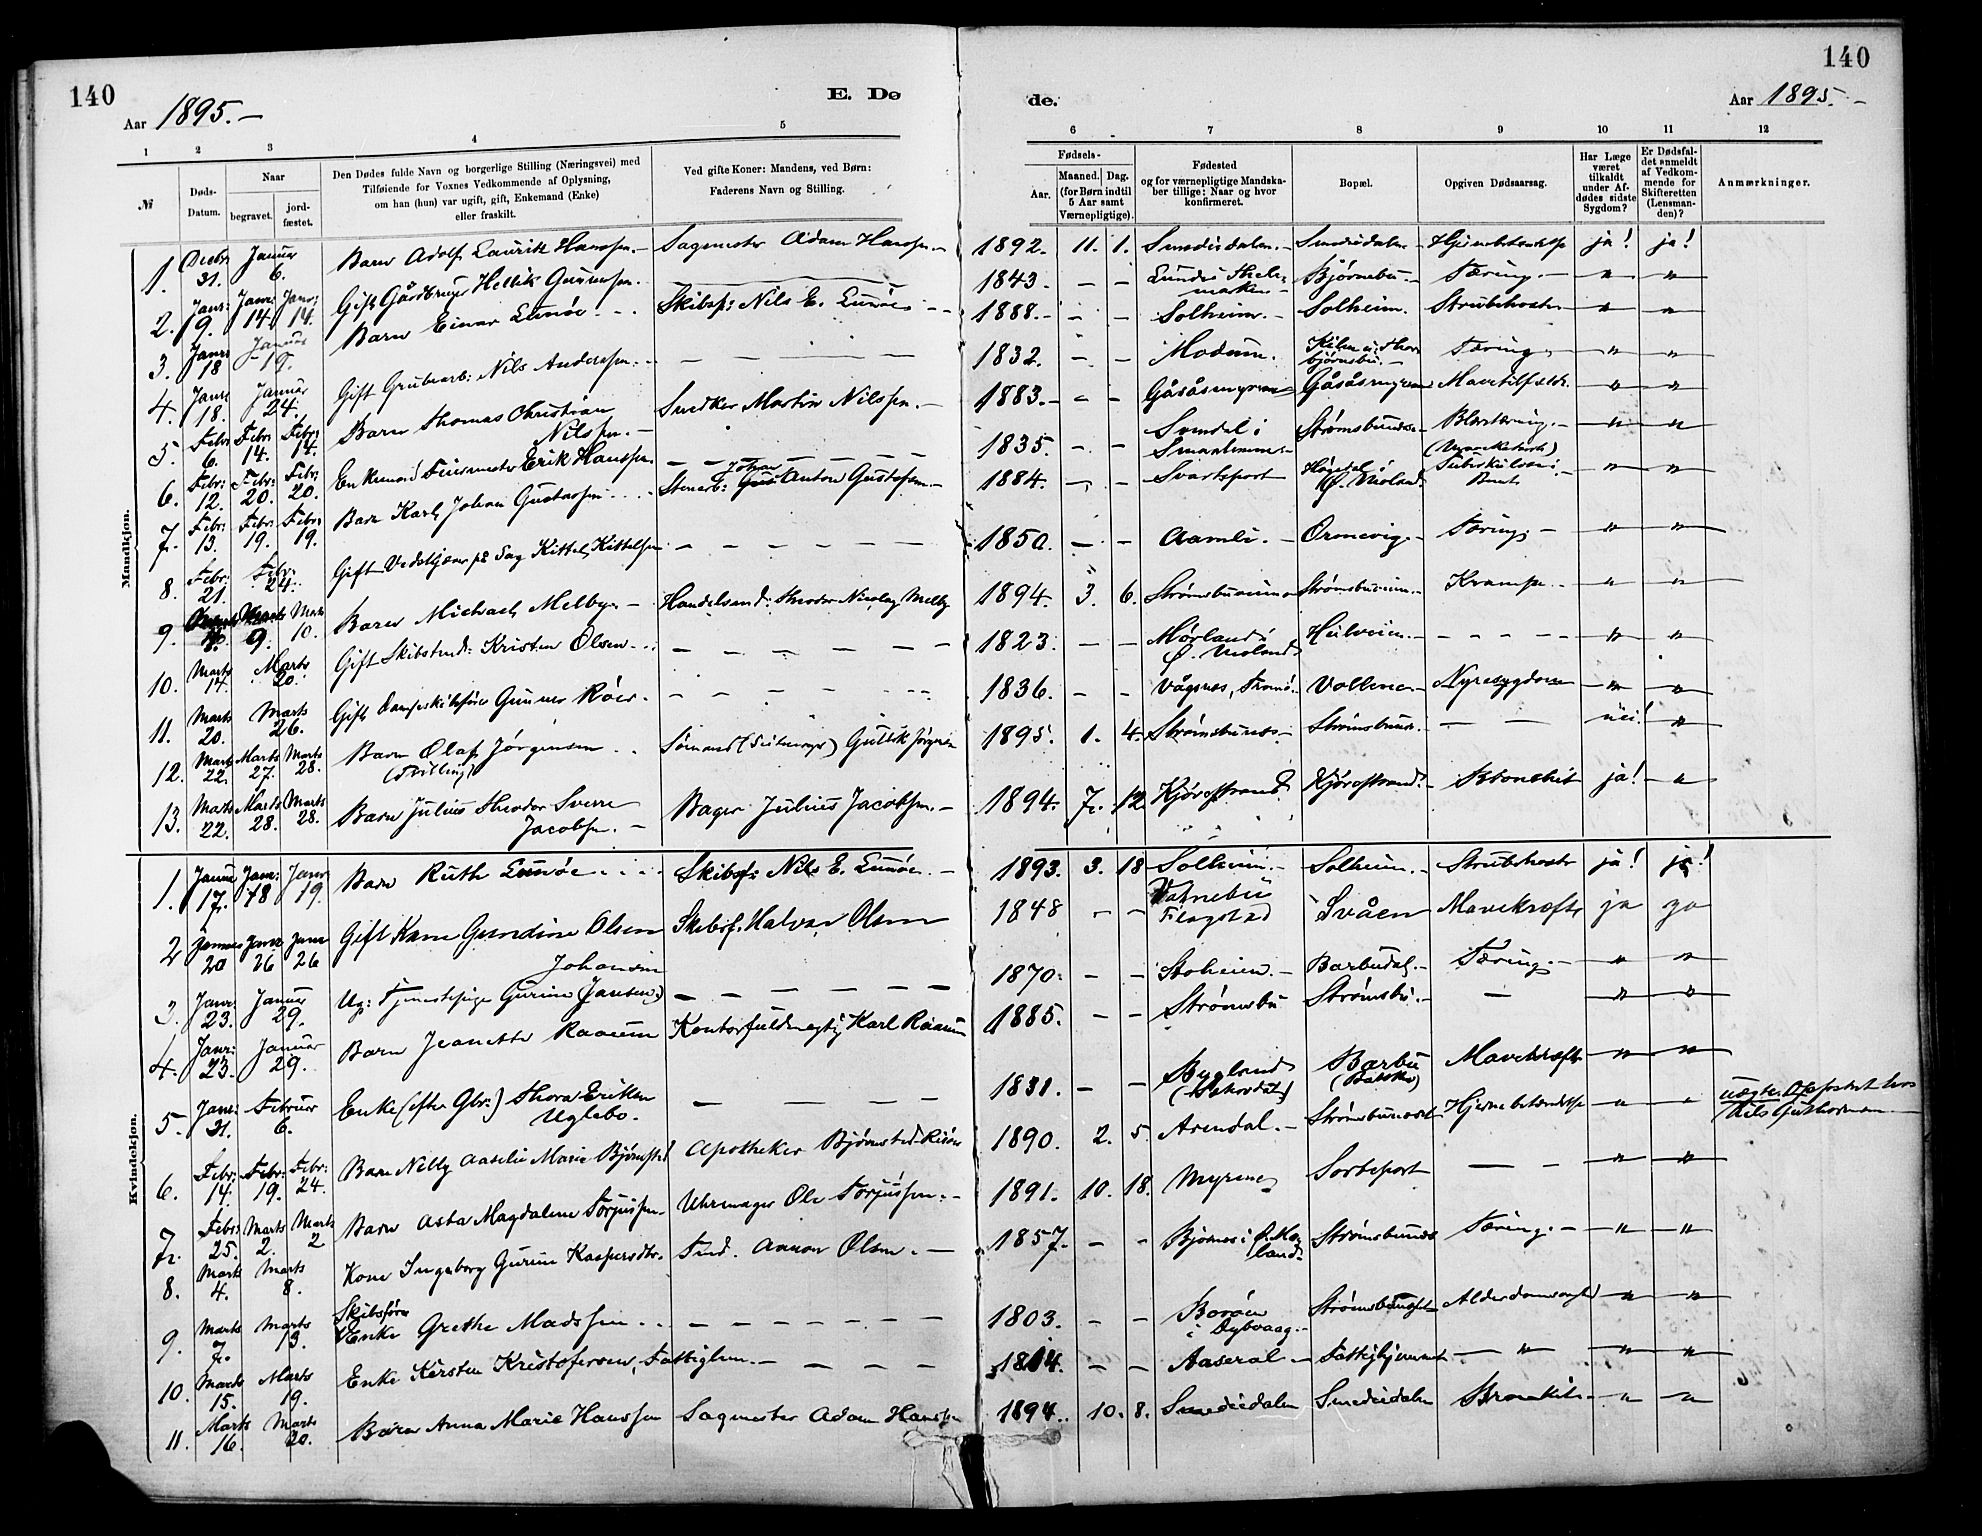 140
140
Aar 1895.—
E. Dø
de.
Aar 1895.—
1 2 3 4 5
6 7 8 9 10 11 12
№
Døds-Datum.
Naar
begravet.
jord-fæstet.
Den Dødes fulde Navn og borgerlige Stilling (Næringsvei) med
Tilføiende for Voxnes Vedkommende af Oplysning,
om han (hun) var ugift, gift, Enkemand (Enke)
eller fraskilt.
Ved gifte Koner: Mandens, ved Børn:
Faderens Navn og Stilling.
Fødsels-
Aar.
Maaned. Dag.
(for Børn indtil
5 Aar samt
Værnepligtige).
Fødested
og for værnepligtige Mandska-
ber tillige: Naar og hvor
konfirmeret.
Bopæl.
Opgiven Dødsaarsag.
Har Læge
været
tilkaldt
under Af-
dødes sidste
Sygdom?
Er Dødsfal-
det anmeldt
af Vedkom-
mende for
Skifteretten
(Lensman-
den)?
Anmærkninger.
Mandkjøn.
1. Decbr 31. Januar 6. Barn Adolf Lauritz Hanssen.— Sagmester Adam Hanssen.— 1892. 11. 1. Smedidalen.— Smedidalen— Hjernebetændelse ja! ja!
2. Janr: 9. Janr 14. Janr: 14. Gift Gårdbruger Hellik Gunnersen.— 1843. — — Bjørnebu.— Tæring.— " "
3. Janr 18 Januar 19. Barn Einar Lunöe - - - Skibsf: Nils E. Lunöe - - 1888.— - — Solheim.— Solheim. Strubehoste. " "
4. Janr 18. Januar 24. Gift Grubearb: Nils Anderssen. - - 1832. — — Modum. Tæring. " "
5. Febr 6. Febr: 14. Febr: 14. Barn Thomas Christian Nilssen.— Snedker Martin Nilssen.— 1883.— - — Gåsåsmyrene Gåsåsmyrene Mavetilfælde. " "
6. Febr: 12. Febr: 20. Febr: 20. Enkemand Erik Hanssen. 1835. — — Svindal i Smaalenene— Blæretæring.— " "
7. Febr: 13. Febr: 19. Febr: 19. Barn Karl Johan Gustafssen - - - Stenarb: Johan Anton Gustafsen.— 1884. — — Svartsport Ø. Moland " "
8. Febr: 21. Febr: 24. Gift Kittel Kittelsen — 1850. — — Aamli.— Ornevig.— Tæring.— " "
9. Marts 9. Marts 10. Barn Michael Melbye.— Handelsmd: Theodor Nicolay Melby 1894. 3. 6. Krampe.— " "
10. Marts 14. Marts 20. Gift Skibstmd: Kristen Olsen - - - 1823. — — Mørland i Ø. Moland - - - - - " "
11. Marts 20. Marts 26. Gift Dampskibsfører Gunner Röer. 1836. — — Vågsnes, Tromö. Vollene— Nyresygdom " "
12. Marts 22. Marts 27. Marts 28. Barn Olaf Jörgensen - - (Tvilling) Sömand Gullik Jörgensen 1895. 1. 4. Strömsbunes— — — nei! "
13. Marts 22. Marts 28. Marts 28. Barn Julius Theodor Sverre Jacobsen.— Bager Julius Jacobsen.— 1894. 7. 12 Bronchit ja! "
Kvindekjøn.
1. Januar 17. Janr: 18 Janr 19. Barn Ruth Lunöe - - - - Skibsf: Nils E. Lunöe.— 1893. 3. 18 Solheim.— Solheim.— Strubehoste ja! ja!
2 Januar 20 Janr 26 Janr 26 Gift Kone Gundine Olsen Skibsf. Halvor Olsen 1848 - - Flagstad Svåen Mavekræft ja ja
3. Janr: 23. Januar 29. Ug: Tjenestepige Gurine Johansen (Jansen) 1870. — — Barbudal.— Tæring.— " "
4. Janr: 23. Januar 29. Barn Jeanette Raaum Kontorfuldmægtig Karl Raaum 1885. — — Strömsbu Strömsbu.— — " "
5. Janr: 31. Februar 6. Enke (efter Gbr.) Thora Eriksen Uglebo. 1831. — — Bygland Barbu Mavekræft " "
6. Febr: 14. Febr: 19. Febr: 24. Barn Nelly Aaselie Marie Bjørnstad Apotheker Bjørnstad Risör 1890. 2. 5. Arendal.— Hjernebetændelse " " uægte. Opfostret hos Nils Guthormsen.
7. Febr: 25. Marts 2. Marts 2 Barn Asta Magdalene Torjussen— Uhrmager Ole Torjussen.— 1891. 10. 18. Myrene Sortsport — - " "
8. Marts 4. Marts 8. Kone Ingeborg Gurine Kaspersdtr. Tmd. Aanon Olsen.— 1857. — - Bjørnes i Ø. Moland. Strömsbunes Tæring.— " "
9. Marts 7. Marts 13. Skibsförer Enke Grethe Madssen - - 1803. — - Borøen i Dybvaag.— Alderdomssvaghed " "
10. Marts 15. Marts 19. Enke Kirsten Kristofersen, Fattiglem.— 1814. — — Aaseral— Fattighjemmet — " — " "
11. Marts 16. Marts 20. Barn Anna Marie Hanssen Sagmester Adam Hanssen 1894. 10. 8. Smedidalen Smedidalen Bronchit— " "